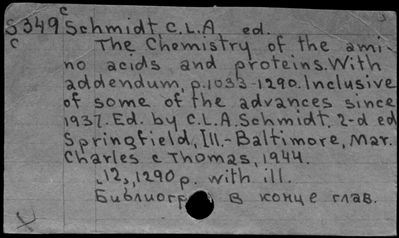 S349 Schmidt C.L.A. ed.
c
C
The Chemistry of the ami-
no acids and proteins. With
addendum, p.1033-1290. Inclusive
of some of the advances since
1937. Ed. by C.L.A. Schmidt. 2-d ed
Springfield, Ill.- Baltimore, Mar.
Charles c Thomas, 1944.
12, 1290 p. with ill.
в конце глав.